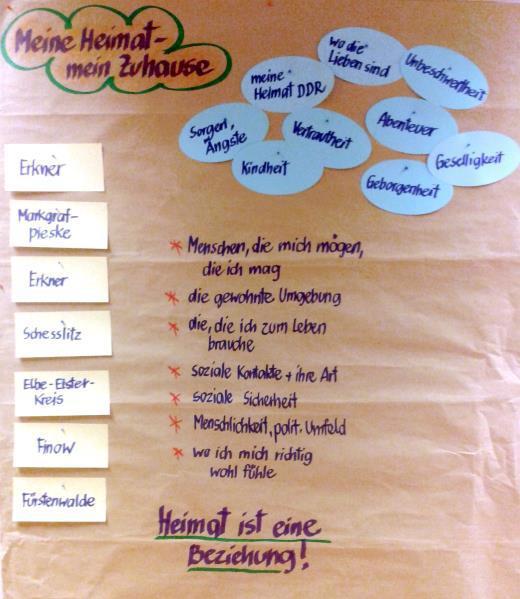 Meine Heimat-
mein Zuhause
wo die
Lieben sind
Unbeschwertheit
meine
Heimat DDR
Sorgen,
Ängste
Vertrautheit
Abenteuer
Kindheit
Geselligkeit
Geborgenheit
Erkner
Markgraf-
pieske
Erkner
Schesslitz
Elbe-Elster-
Kreis
Finow
Fürstenwalde
* Menschen, die mich mögen,
die ich mag
* die gewohnte Umgebung
* die, die ich zum Leben
brauche
* soziale Kontakte + ihre Art
* soziale Sicherheit
* Menschlichkeit, polit. Umfeld
* wo ich mich richtig
wohl fühle
Heimat ist eine
Beziehung!